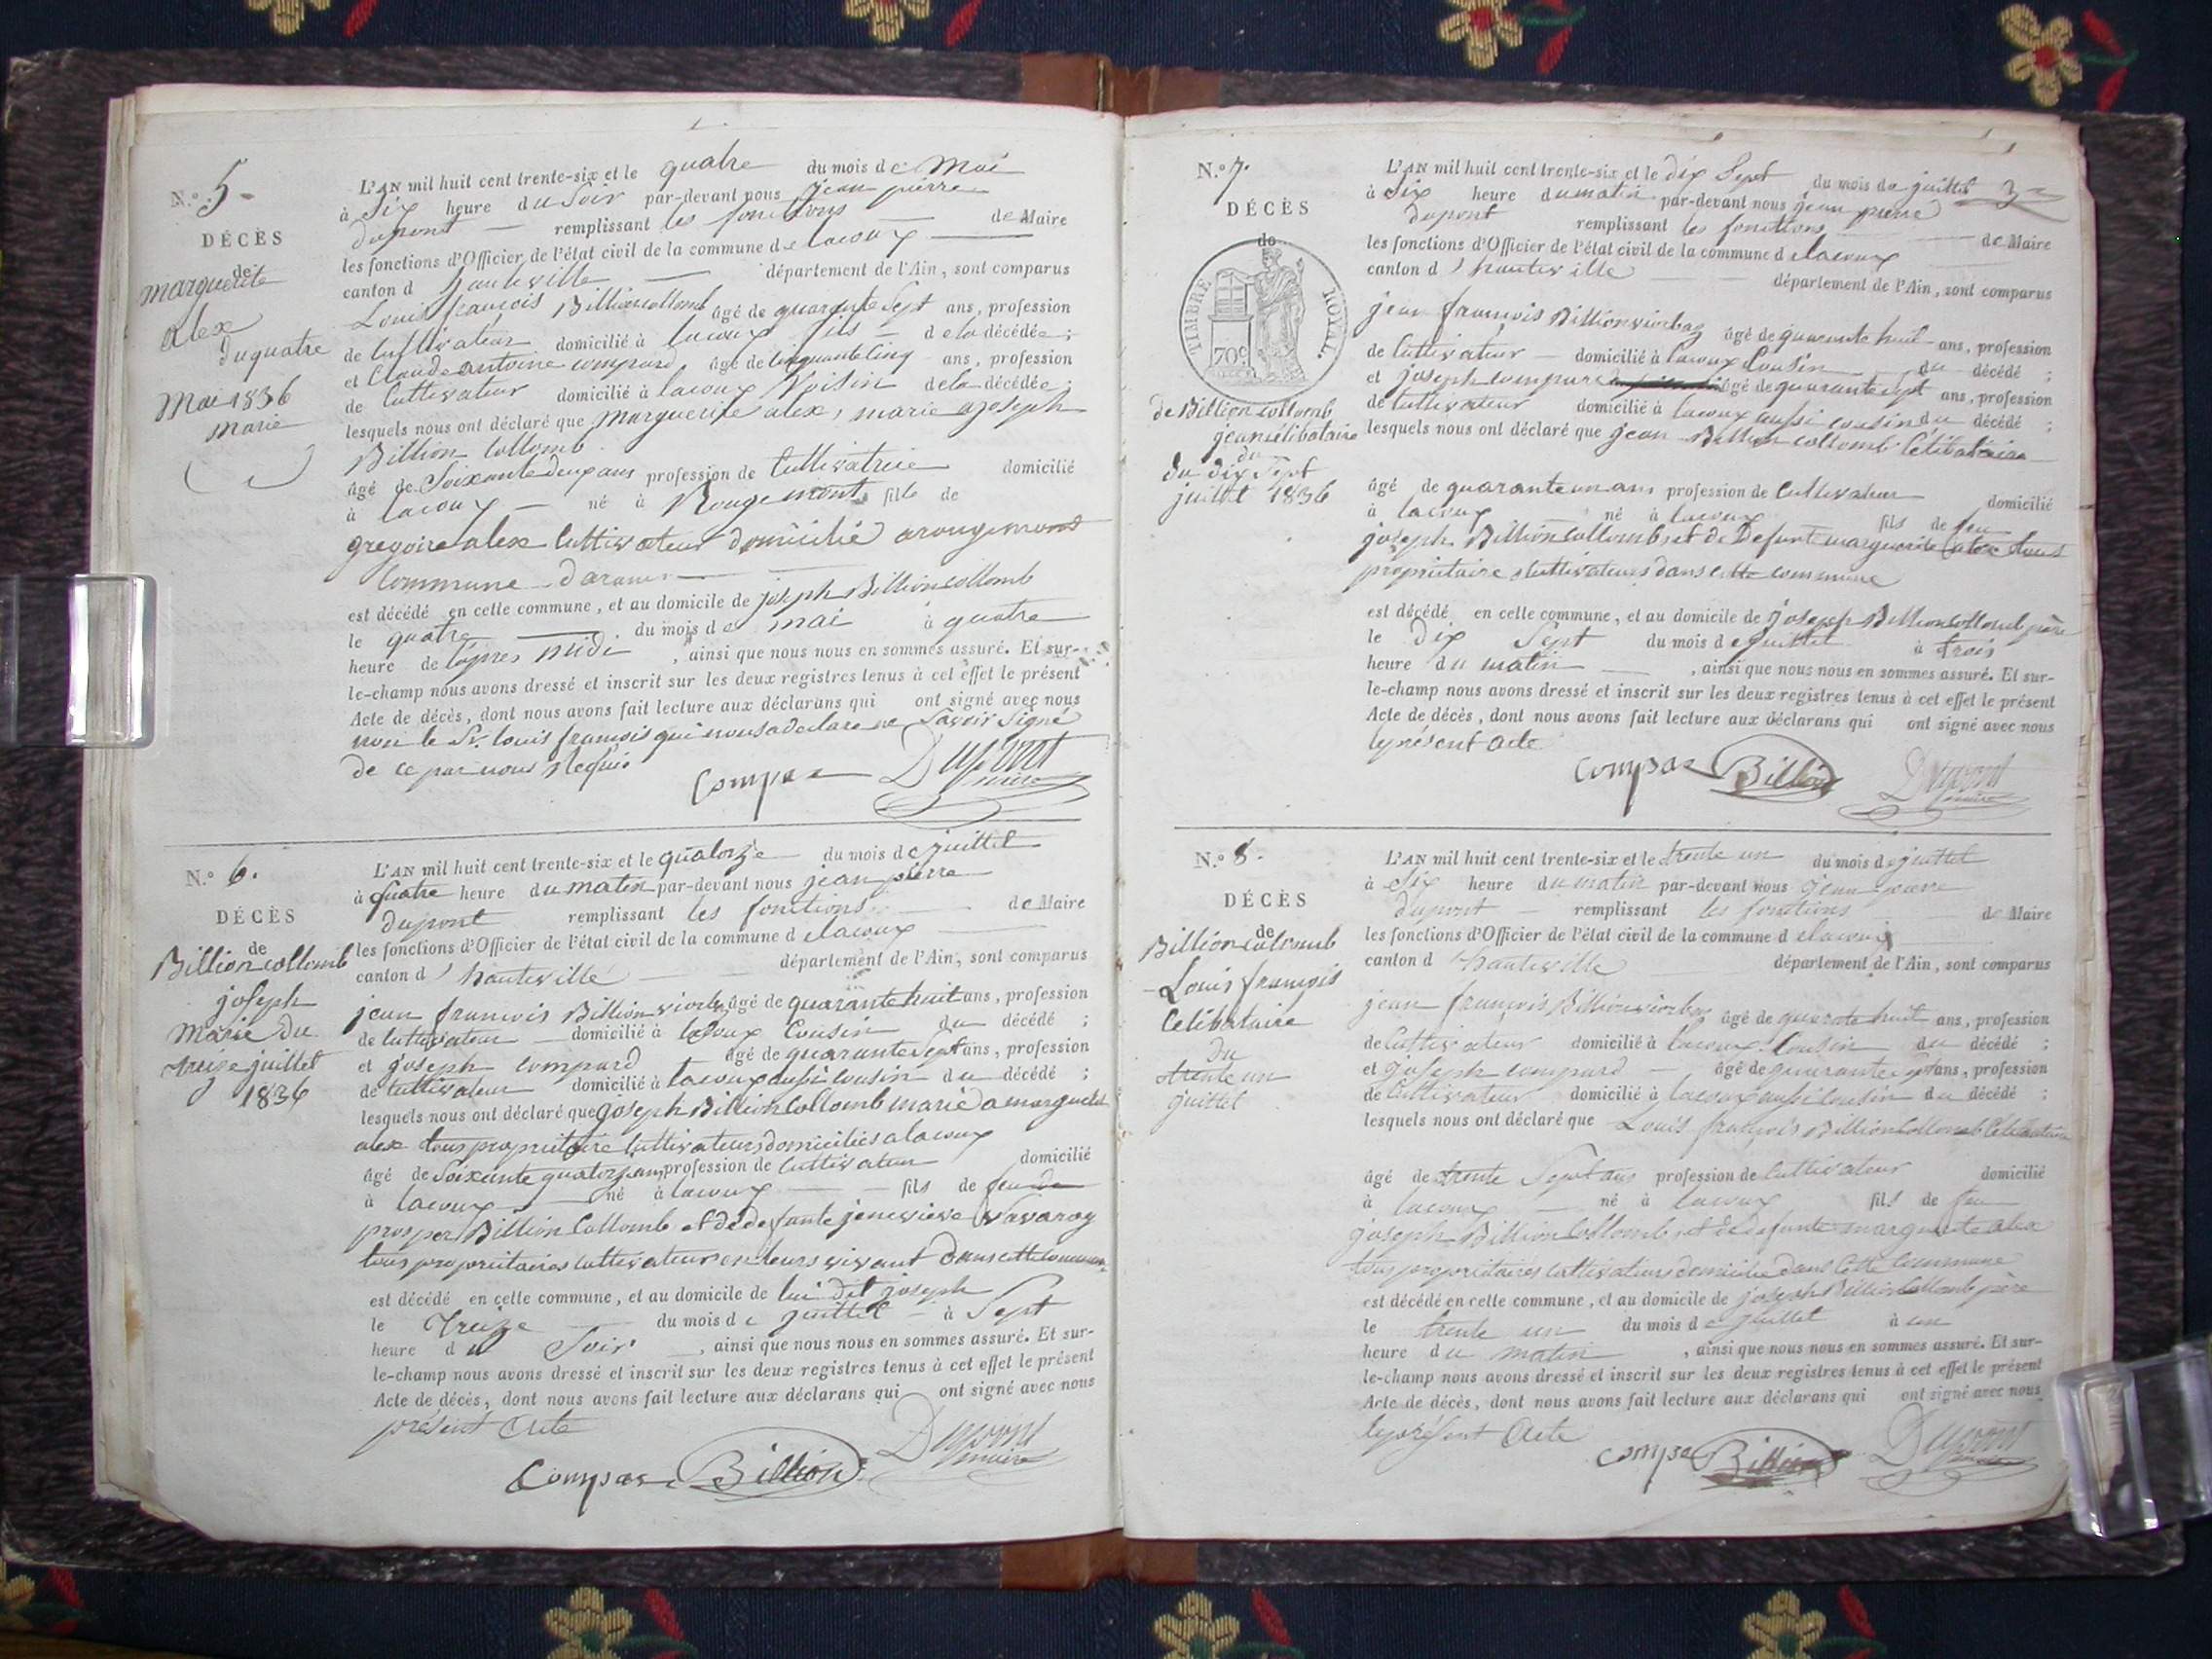 N.º 5.
DÉCÈS
de
marguerite
alex
du quatre
Mai 1836
marie
L'AN mil huit cent trente-six et le quatre du mois de Mai
à Six heure du Soir par-devant nous jean pierre
dupont remplissant les fonctions de Maire
les fonctions d'Officier de l'état civil de la commune de lacoux
canton d hauteville département de l'Ain, sont comparus
Louis françois Billion collomb âgé de quarante Sept ans, profession
de Cultivateur domicilié à lacoux fils de la décédée;
et Claude antoine compard, âgé de cinquante cinq ans, profession
de Cultivateur domicilié à lacoux Voisin de la décédée;
lesquels nous ont déclaré que marguerite alex, marie a joseph
Billion Collomb
âgé de Soixante deux ans profession de Cultivatrice domicilié
à lacoux né à Rougemont fille de
gregoire alex Cultivateur domicilié a rougemont
Commune d'aranc
est décédé en cette commune, et au domicile de joseph Billion collomb
le quatre du mois de mai à quatre
heure de l'apres midi, ainsi que nous nous en sommes assuré. Et sur-
le-champ nous avons dressé et inscrit sur les deux registres tenus à cet effet le présent
Acte de décès, dont nous avons fait lecture aux déclarans qui ont signé avec nous
non le Sr. louis françois qui nous a declare ne Savoir Signé
de ce par nous Requis
Compar Dupont
maire
N.º 6.
DÉCÈS
de
Billion collomb
joseph
marie du
treize juillet
1836
L'AN mil huit cent trente-six et le quatorze du mois de juillet
à quatre heure du matin par-devant nous jean pierre
dupont remplissant les fonctions de Maire
les fonctions d'Officier de l'état civil de la commune de lacoux
canton d'hauteville département de l'Ain, sont comparus
jean francois Billion viorbaz âgé de quarante huit ans, profession
de Cultivateur domicilié à lacoux Cousin du décédé;
et joseph compard âgé de quarante Sept ans, profession
de Cultivateur domicilié à lacoux aussi cousin du décédé;
lesquels nous ont déclaré que joseph Billion Collomb marie a marguerite
alex tous propriétaire Cultivateurs domiciliés a lacoux
âgé de Soixante quatorze ans profession de Cultivateur domicilié
à lacoux né à lacoux fils de feu
prosper Billion Collomb et de defunte jenevieve Savaroy
tous propriétaires Cultivateur en leurs vivant dans cette commune
est décédé en cette commune, et au domicile de lui dit joseph
le Treize du mois de juillet à Sept
heure du Soir, ainsi que nous nous en sommes assuré. Et sur-
le-champ nous avons dressé et inscrit sur les deux registres tenus à cet effet le présent
Acte de décès, dont nous avons fait lecture aux déclarans qui ont signé avec nous
présent Acte
Compar Billion Dupont
maire
N.º 7.
DÉCÈS
de
TIMBRE ROYAL.
70c
de Billion Collomb
jean célibataire
du
du dix Sept
juillet 1836
L'AN mil huit cent trente-six et le dix Sept du mois de juillet 3
à Six heure du matin par-devant nous jean pierre
dupont remplissant les fonctions de Maire
les fonctions d'Officier de l'état civil de la commune de lacoux
canton d'hauteville département de l'Ain, sont comparus
jean francois Billion viorbaz âgé de quarante huit ans, profession
de Cultivateur domicilié à lacoux Cousin du décédé;
et joseph compard âgé de quarante Sept ans, profession
de Cultivateur domicilié à lacoux aussi cousin du décédé;
lesquels nous ont déclaré que jean Billion collomb Célibataire
âgé de quarante un ans profession de Cultivateur domicilié
à lacoux né à lacoux fils de feu
joseph Billion Collomb et de Defunte marguerite alex tous
propriétaire Cultivateurs dans cette commune
est décédé en cette commune, et au domicile de joseph Billion Collomb père
le Dix Sept du mois de juillet à trois
heure du matin, ainsi que nous nous en sommes assuré. Et sur-
le-champ nous avons dressé et inscrit sur les deux registres tenus à cet effet le présent
Acte de décès, dont nous avons fait lecture aux déclarans qui ont signé avec nous
le présent Acte
Compar Billion Dupont
maire
N.º 8.
DÉCÈS
de
Billion Collomb
Louis françois
Célibataire
Du
trente un
juillet
L'AN mil huit cent trente-six et le trente un du mois de juillet
à Six heure du matin par-devant nous jean pierre
dupont remplissant les fonctions de Maire
les fonctions d'Officier de l'état civil de la commune de lacoux
canton d'hauteville département de l'Ain, sont comparus
jean francois Billion viorbaz âgé de quarante huit ans, profession
de Cultivateur domicilié à lacoux Cousin du décédé;
et joseph compard âgé de quarante Sept ans, profession
de Cultivateur domicilié à lacoux aussi Cousin du décédé;
lesquels nous ont déclaré que Louis françois Billion Collomb Célibataire
âgé de trente Sept ans profession de Cultivateur domicilié
à lacoux né à lacoux fils de feu
joseph Billion Collomb et de defunte marguerite alex
tous propriétaires Cultivateurs domicilié dans Cette Commune
est décédé en cette commune, et au domicile de joseph Billion Collomb père
le trente un du mois de juillet à un
heure du matin, ainsi que nous nous en sommes assuré. Et sur-
le-champ nous avons dressé et inscrit sur les deux registres tenus à cet effet le présent
Acte de décès, dont nous avons fait lecture aux déclarans qui ont signé avec nous
le présent Acte
Compar Billion Dupont
maire